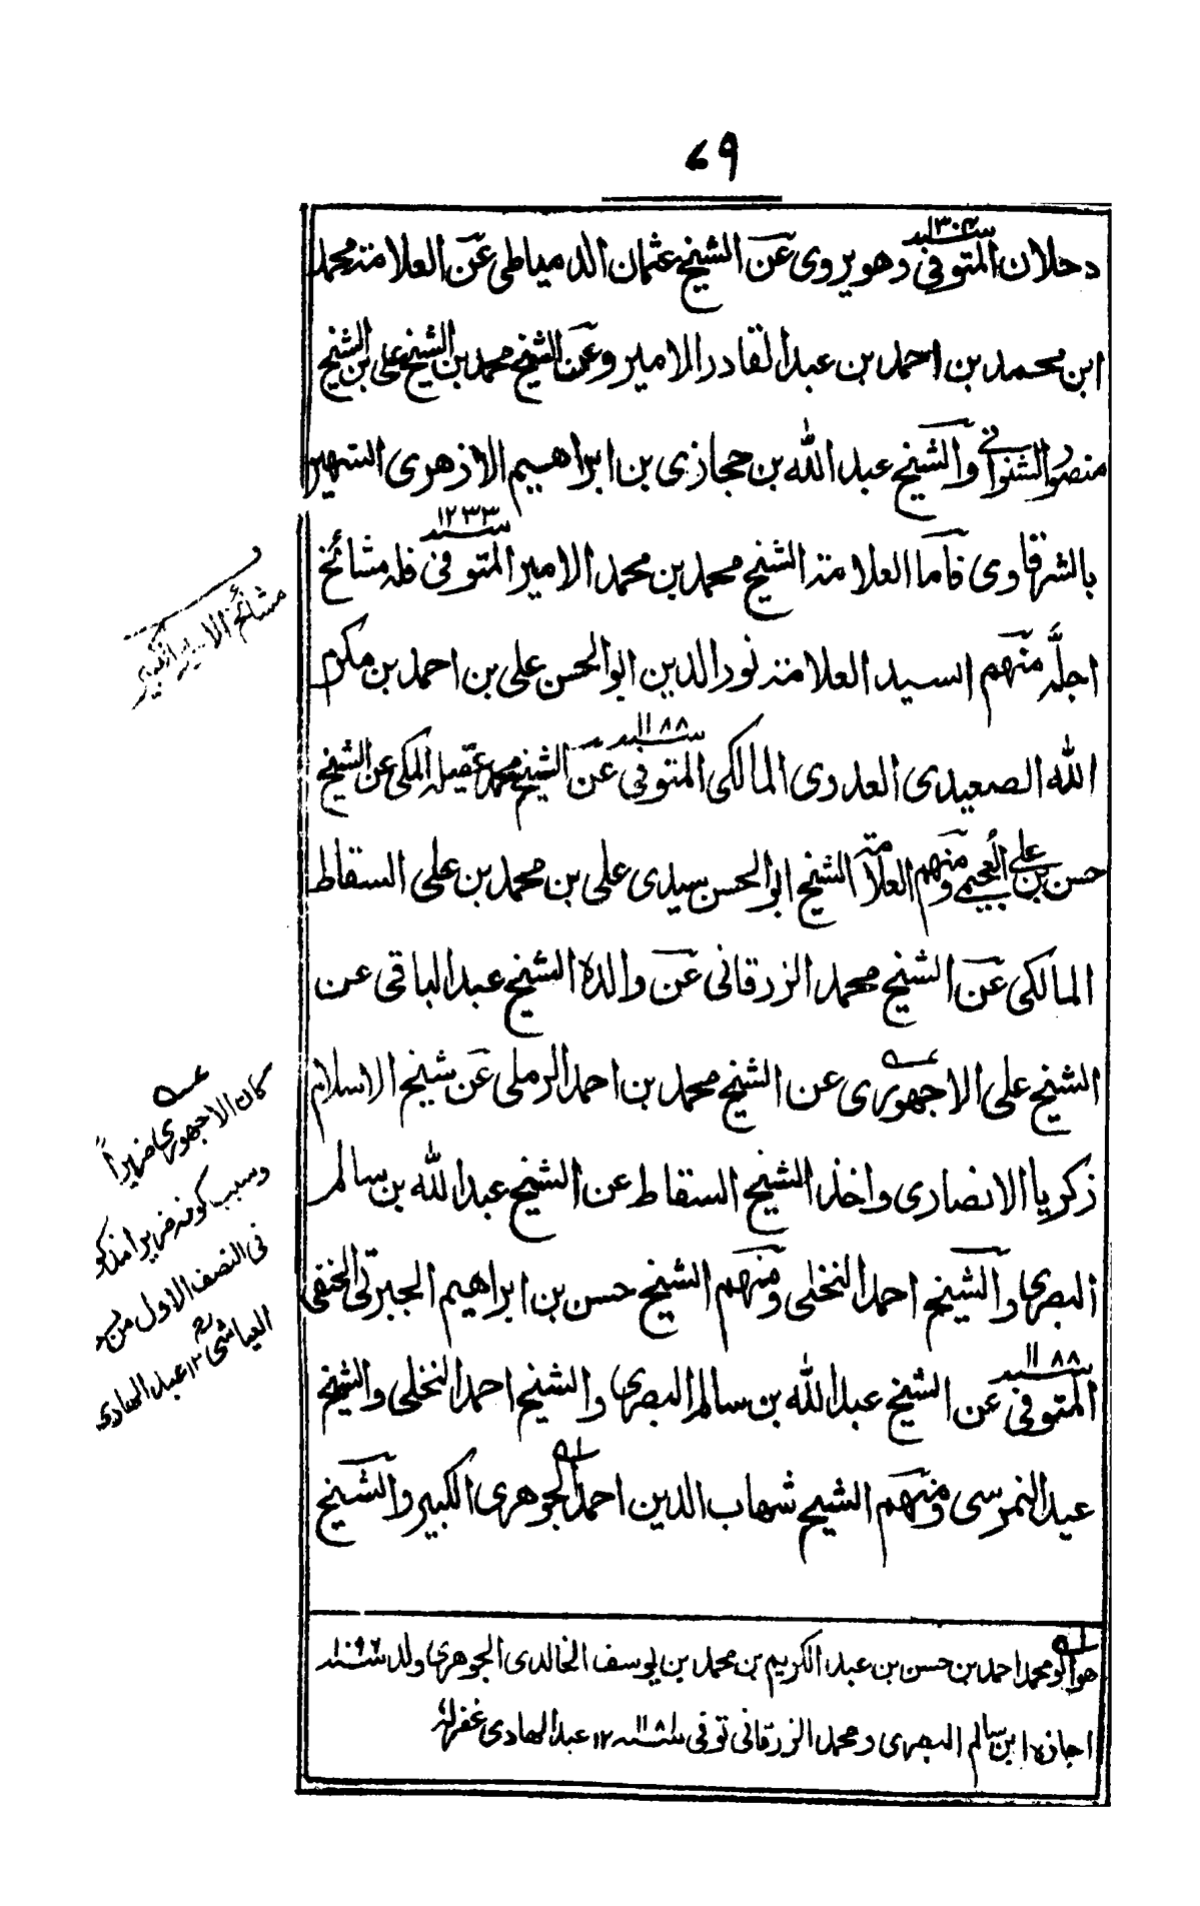 ٦٩
دحلان المتوفى سنة ١٣٠٤ وهو يروى عن الشيخ عثمان الدمياطى عن العلامة محمد
ابن محمد بن احمد بن عبد القادر الامير وعن الشيخ محمد بن الشيخ على بن الشيخ
منصور الشنوانى والشيخ عبد الله بن حجازى بن ابراهيم الازهرى الشهير
بالشرقاوى فاما العلامة الشيخ محمد بن محمد الامير المتوفى سنة ١٢٣٣ فله مشائخ
اجلّه منهم السيد العلامة نور الدين ابو الحسن على بن احمد بن مكرم
الله الصعيدى العدوى المالكى المتوفى سنة ١١٨٨ عن الشيخ محمد عقيله المكى عن الشيخ
حسن بن على العجيمى ومنهم العلامة الشيخ ابو الحسن سيدى على بن محمد بن على السقاط
المالكى عن الشيخ محمد الزرقانى عن والده الشيخ عبد الباقى عن
الشيخ على الاجهورى عن الشيخ محمد بن احمد الرملى عن شيخ الاسلام
زكريا الانصارى واخذ الشيخ السقاط عن الشيخ عبد الله بن سالم
البصرى والشيخ احمد النخلى ومنهم الشيخ حسن بن ابراهيم الجبرتى الحنفى
المتوفى سنة ١١٨٨ عن الشيخ عبد الله بن سالم البصرى والشيخ احمد النخلى والشيخ
عيد النمرسى ومنهم الشيخ شهاب الدين احمد الجوهرى الكبير والشيخ
مشائخ الامير الكبير
كان الاجهورى ضريراً
وسبب كونه ضريرا مذكو
فى النصف الاول من
العياشى ١٢ عبد الهادى
هو ابو محمد احمد بن حسن بن عبد الكريم بن محمد بن يوسف الخالدى الجوهرى ولد سنة ١٠٩٦
اجازه ابن سالم البصرى ومحمد الزرقانى توفى سنة ١١٨١ ١٢ عبد الهادى غفرله